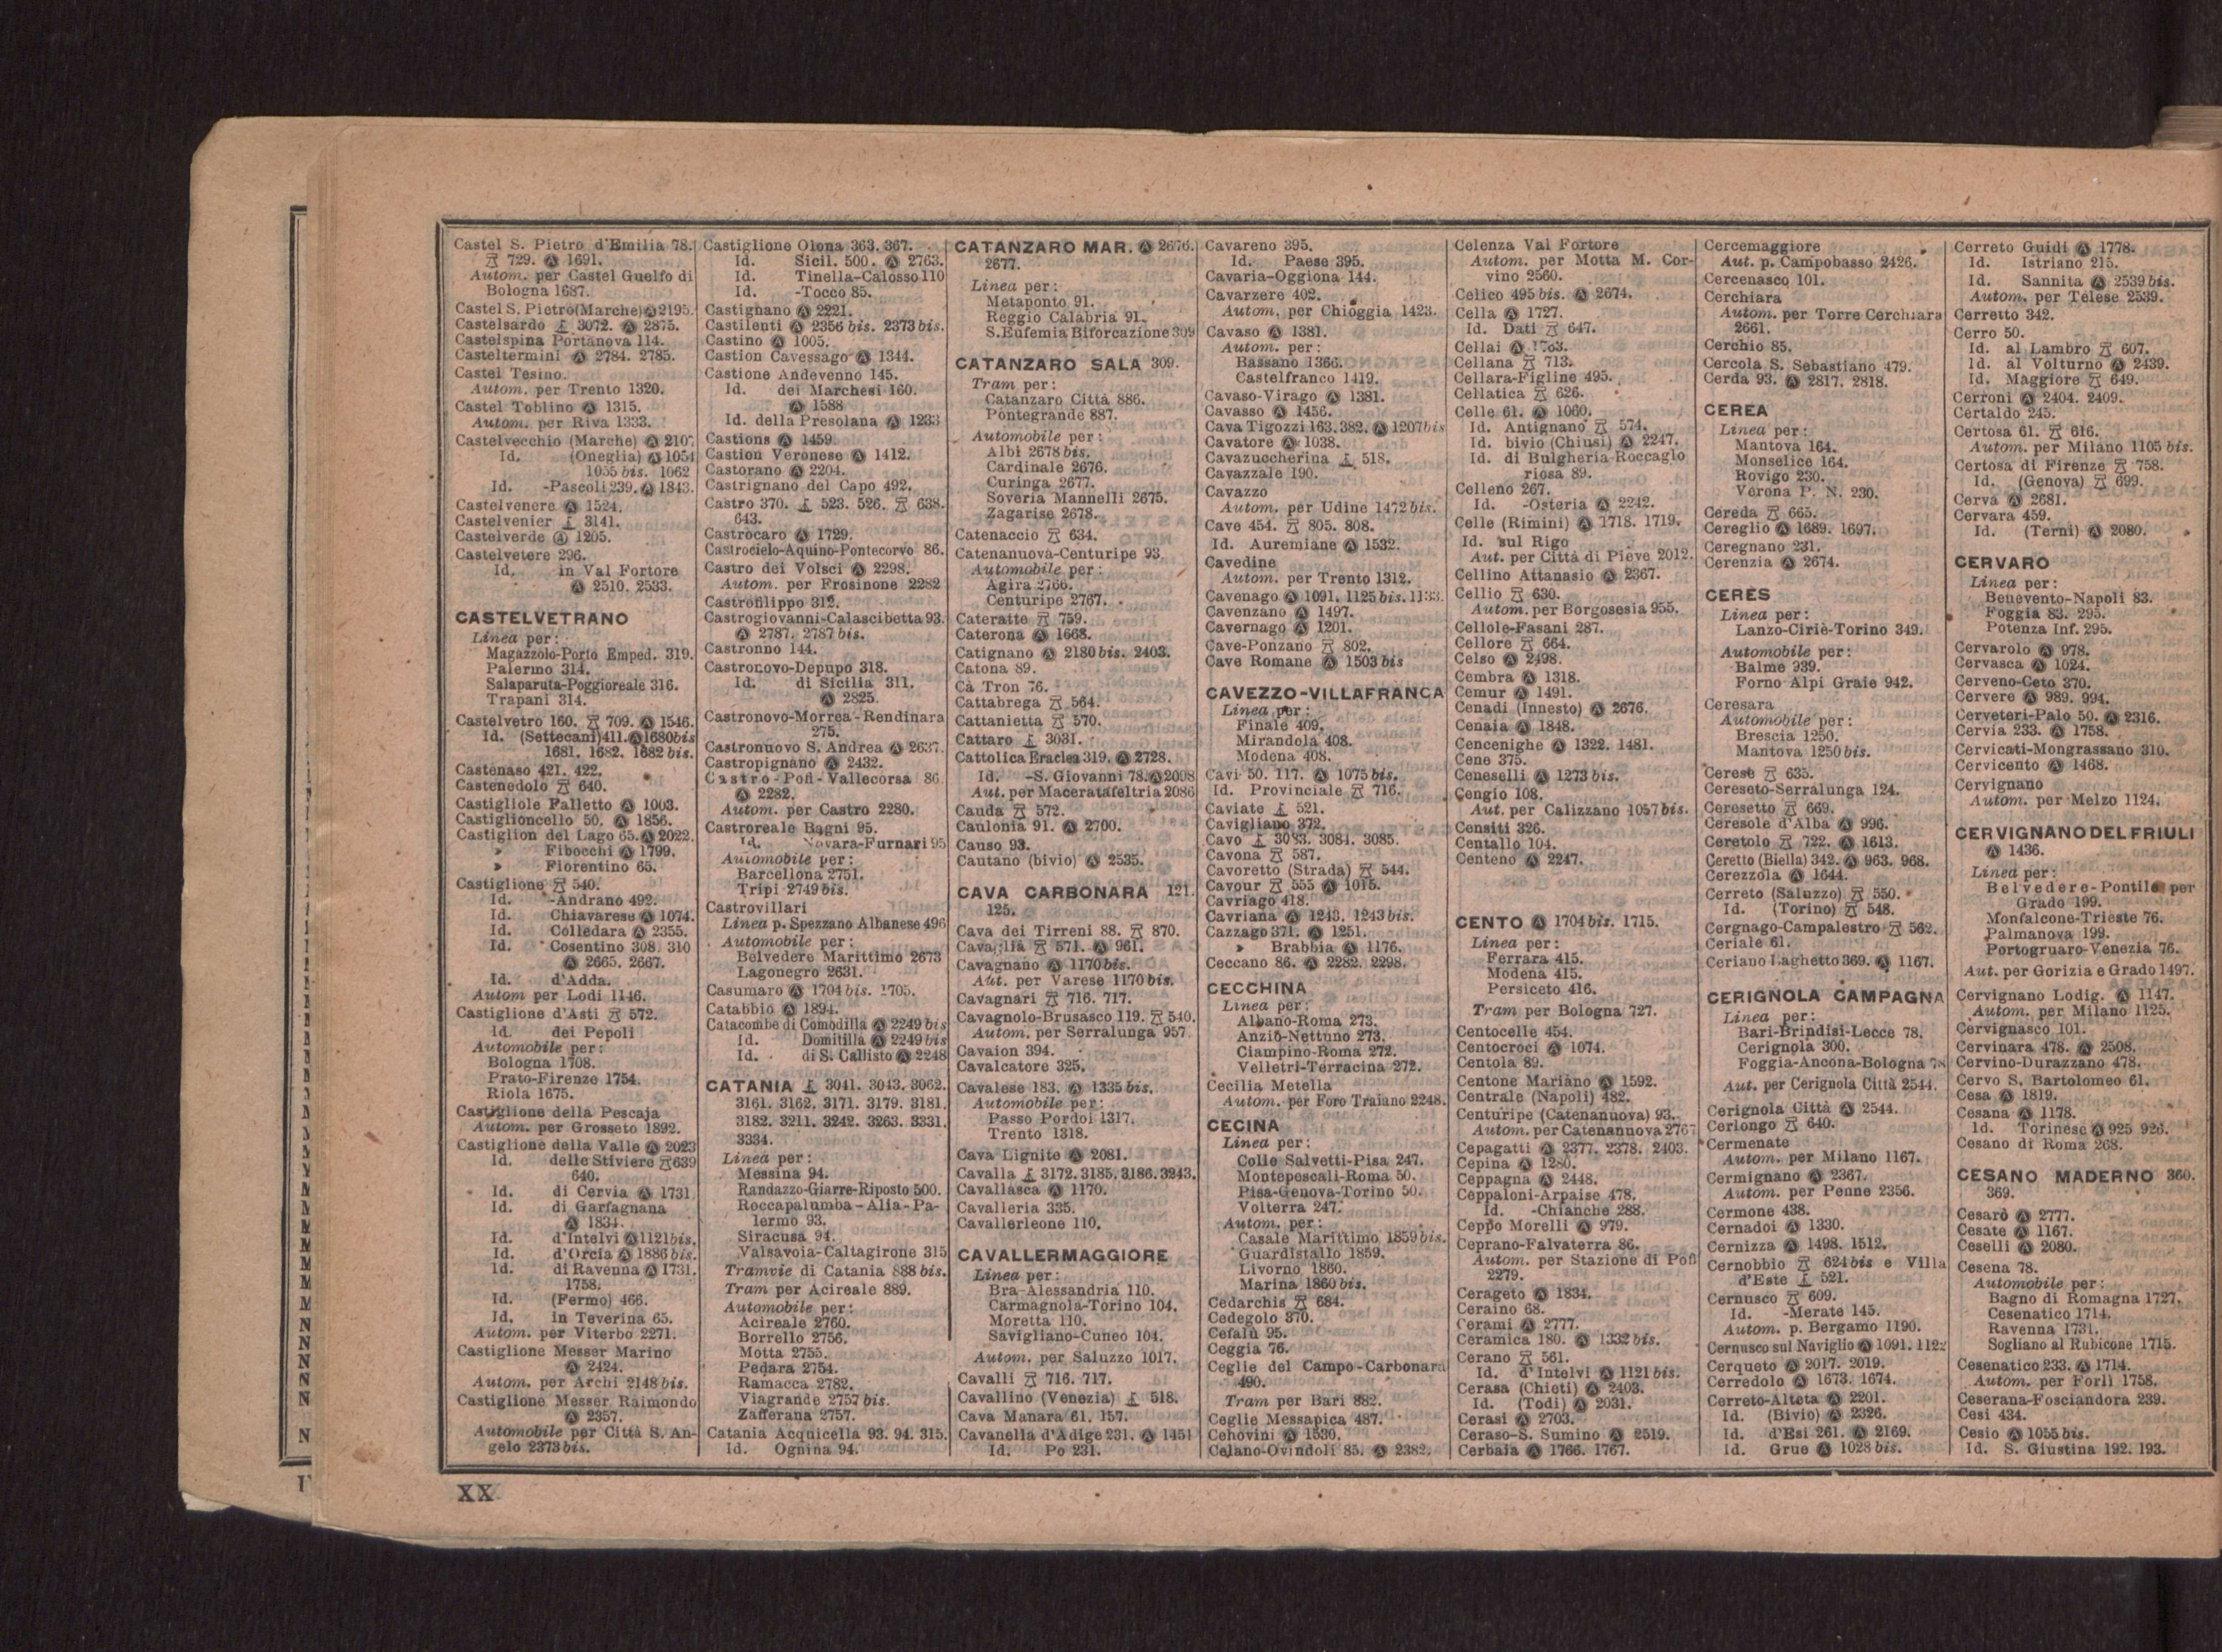 Castel S. Pietro d'Emilia 78.
729. Ⓐ 1691.
Autom. per Castel Guelfo di
Bologna 1687.
Castel S. Pietro(Marche) Ⓐ 2195.
Castelsardo 3072. Ⓐ 2875.
Castelspina Portanova 114.
Casteltermini Ⓐ 2784. 2785.
Castel Tesino.
Autom. per Trento 1320.
Castel Toblino Ⓐ 1315.
Autom. per Riva 1333.
Castelvecchio (Marche) Ⓐ 2107
Id. (Oneglia) Ⓐ 1054
1055 bis. 1062
Id. -Pascoli 239. Ⓐ 1843.
Castelvenere Ⓐ 1524.
Castelvenier 3141.
Castelverde Ⓐ 1205.
Castelvetere 296.
Id. in Val Fortore
Ⓐ 2510. 2533.
CASTELVETRANO
Linea per:
Magazzolo-Porto Emped. 319.
Palermo 314.
Salaparuta-Poggioreale 316.
Trapani 314.
Castelvetro 160. 709. Ⓐ 1546.
Id. (Settecani) 411. Ⓐ 1680 bis
1681. 1682. 1682 bis.
Castenaso 421. 422.
Castenedolo 640.
Castigliole Falletto Ⓐ 1003.
Castiglioncello 50. Ⓐ 1856.
Castiglion del Lago 65. Ⓐ 2022.
» Fibocchi Ⓐ 1799.
» Fiorentino 65.
Castiglione 540.
Id. -Andrano 492.
Id. Chiavarese Ⓐ 1074.
Id. Colledara Ⓐ 2355.
Id. Cosentino 308. 310
Ⓐ 2665. 2667.
Id. d'Adda.
Autom per Lodi 1146.
Castiglione d'Asti 572.
Id. dei Pepoli
Automobile per:
Bologna 1708.
Prato-Firenze 1754.
Riola 1675.
Castiglione della Pescaja
Autom. per Grosseto 1892.
Castiglione della Valle Ⓐ 2023
Id. delle Stiviere 639
640.
Id. di Cervia Ⓐ 1731
Id. di Garfagnana
Ⓐ 1834.
Id. d'Intelvi Ⓐ 1121 bis.
Id. d'Orcia Ⓐ 1886 bis.
Id. di Ravenna Ⓐ 1731.
1758.
Id. (Fermo) 466.
Id. in Teverina 65.
Autom. per Viterbo 2271.
Castiglione Messer Marino
Ⓐ 2424.
Autom. per Archi 2148 bis.
Castiglione Messer Raimondo
Ⓐ 2357.
Automobile per Città S. An-
gelo 2373 bis.
Castiglione Olona 363. 367.
Id. Sicil. 500. Ⓐ 2763.
Id. Tinella-Calosso 110
Id. -Tocco 85.
Castignano Ⓐ 2221.
Castilenti Ⓐ 2356 bis. 2373 bis.
Castino Ⓐ 1005.
Castion Cavessago Ⓐ 1344.
Castione Andevenno 145.
Id. dei Marchesi 160.
Ⓐ 1588
Id. della Presolana Ⓐ 1233
Castions Ⓐ 1459.
Castion Veronese Ⓐ 1412.
Castorano Ⓐ 2204.
Castrignano del Capo 492.
Castro 370. 523. 526. 638.
643.
Castrocaro Ⓐ 1729.
Castrocielo-Aquino-Pontecorvo 86.
Castro dei Volsci Ⓐ 2298.
Autom. per Frosinone 2282
Castrofilippo 312.
Castrogiovanni-Calascibetta 93.
Ⓐ 2787. 2787 bis.
Castronno 144.
Castronovo-Depupo 318.
Id. di Sicilia 311.
Ⓐ 2825.
Castronovo-Morrea-Rendinara
275.
Castronuovo S. Andrea Ⓐ 2637.
Castropignano Ⓐ 2432.
Castro-Pofi-Vallecorsa 86
Ⓐ 2282.
Autom. per Castro 2280.
Castroreale Bagni 95.
Id. Novara-Furnari 95
Automobile per:
Barcellona 2751.
Tripi 2749 bis.
Castrovillari
Linea p. Spezzano Albanese 496
Automobile per:
Belvedere Marittimo 2673
Lagonegro 2631.
Casumaro Ⓐ 1704 bis. 1705.
Catabbio Ⓐ 1894.
Catacombe di Comodilla Ⓐ 2249 bis
Id. Domitilla Ⓐ 2249 bis
Id. di S. Callisto Ⓐ 2248
CATANIA 3041. 3043. 3062.
3161. 3162. 3171. 3179. 3181.
3182. 3211. 3242. 3263. 3331.
3334.
Linea per:
Messina 94.
Randazzo-Giarre-Riposto 500.
Roccapalumba-Alia-Pa-
lermo 93.
Siracusa 94.
Valsavoia-Caltagirone 315
Tramvie di Catania 888 bis.
Tram per Acireale 889.
Automobile per:
Acireale 2760.
Borrello 2756.
Motta 2755.
Pedara 2754.
Ramacca 2782.
Viagrande 2757 bis.
Zafferana 2757.
Catania Acquicella 93. 94. 315.
Id. Ognina 94.
CATANZARO MAR. Ⓐ 2676.
2677.
Linea per:
Metaponto 91.
Reggio Calabria 91.
S. Eufemia Biforcazione 309
CATANZARO SALA 309.
Tram per:
Catanzaro Città 886.
Pontegrande 887.
Automobile per:
Albi 2678 bis.
Cardinale 2676.
Curinga 2677.
Soveria Mannelli 2675.
Zagarise 2678.
Catenaccio 634.
Catenanuova-Centuripe 93
Automobile per:
Agira 2766.
Centuripe 2767.
Cateratte 759.
Caterona Ⓐ 1668.
Catignano Ⓐ 2180 bis. 2403.
Catona 89.
Cà Tron 76.
Cattabrega 564.
Cattanietta 570.
Cattaro 3031.
Cattolica Eraclea 319. Ⓐ 2728.
Id. -S. Giovanni 78. Ⓐ 2098
Aut. per Maceratafeltria 2086
Cauda 572.
Caulonia 91. Ⓐ 2700.
Causo 93.
Cautano (bivio) Ⓐ 2535.
CAVA CARBONARA 121.
125.
Cava dei Tirreni 88. 870.
Cavaglià 571. Ⓐ 961.
Cavagnano Ⓐ 1170 bis.
Aut. per Varese 1170 bis.
Cavagnari 716. 717.
Cavagnolo-Brusasco 119. 540.
Autom. per Serralunga 957
Cavaion 394.
Cavalcatore 325.
Cavalese 183. Ⓐ 1335 bis.
Automobile per:
Passo Pordoi 1317.
Trento 1318.
Cava Lignite Ⓐ 2081.
Cavalla 3172. 3185. 3186. 3243.
Cavallasca Ⓐ 1170.
Cavalleria 335.
Cavallerleone 110.
CAVALLERMAGGIORE
Linea per:
Bra-Alessandria 110.
Carmagnola-Torino 104.
Moretta 110.
Savigliano-Cuneo 104.
Autom. per Saluzzo 1017.
Cavalli 716. 717.
Cavallino (Venezia) 518.
Cava Manara 61. 157.
Cavanella d'Adige 231. Ⓐ 1451
Id. Po 231.
Cavareno 395.
Id. Paese 395.
Cavaria-Oggiona 144.
Cavarzere 402.
Autom. per Chioggia 1423.
Cavaso Ⓐ 1381.
Autom. per:
Bassano 1366.
Castelfranco 1419.
Cavaso-Virago Ⓐ 1381.
Cavasso Ⓐ 1456.
Cava Tigozzi 163. 382. Ⓐ 1207 bis
Cavatore Ⓐ 1038.
Cavazuccherina 518.
Cavazzale 190.
Cavazzo
Autom. per Udine 1472 bis.
Cave 454. 805. 808.
Id. Auremiane Ⓐ 1532.
Cavedine
Autom. per Trento 1312.
Cavenago Ⓐ 1091. 1125 bis. 1133.
Cavenzano Ⓐ 1497.
Cavernago Ⓐ 1201.
Cave-Ponzano 802.
Cave Romane Ⓐ 1503 bis
CAVEZZO-VILLAFRANCA
Linea per:
Finale 409.
Mirandola 408.
Modena 408.
Cavi 50. 117. Ⓐ 1075 bis.
Id. Provinciale 716.
Caviate 521.
Cavigliano 372.
Cavo 3083. 3084. 3085.
Cavona 587.
Cavoretto (Strada) 544.
Cavour 555 Ⓐ 1015.
Cavriago 418.
Cavriana Ⓐ 1243. 1243 bis.
Cazzago 371. Ⓐ 1251.
» Brabbia Ⓐ 1176.
Ceccano 86. Ⓐ 2282. 2298.
CECCHINA
Linea per:
Albano-Roma 273.
Anzio-Nettuno 273.
Ciampino-Roma 272.
Velletri-Terracina 272.
Cecilia Metella
Autom. per Foro Traiano 2248.
CECINA
Linea per:
Colle Salvetti-Pisa 247.
Montepescali-Roma 50.
Pisa-Genova-Torino 50.
Volterra 247.
Autom. per:
Casale Marittimo 1859 bis.
Guardistallo 1859.
Livorno 1860.
Marina 1860 bis.
Cedarchis 684.
Cedegolo 370.
Cefalù 95.
Ceggia 76.
Ceglie del Campo-Carbonara
490.
Tram per Bari 882.
Ceglie Messapica 487.
Cehovini Ⓐ 1530.
Celano-Ovindoli 85. Ⓐ 2382.
Celenza Val Fortore
Autom. per Motta M. Cor-
vino 2560.
Celico 495 bis. Ⓐ 2674.
Cella Ⓐ 1727.
Id. Dati 647.
Cellai Ⓐ 1763.
Cellana 713.
Cellara-Figline 495.
Cellatica 626.
Celle 61. Ⓐ 1060.
Id. Antignano 574.
Id. bivio (Chiusi) Ⓐ 2247.
Id. di Bulgheria-Roccaglo
riosa 89.
Celleno 267.
Id. -Osteria Ⓐ 2242.
Celle (Rimini) Ⓐ 1718. 1719.
Id. sul Rigo
Aut. per Città di Pieve 2012.
Cellino Attanasio Ⓐ 2367.
Cellio 630.
Autom. per Borgosesia 955.
Cellole-Fasani 287.
Cellore 664.
Celso Ⓐ 2498.
Cembra Ⓐ 1318.
Cemur Ⓐ 1491.
Cenadi (Innesto) Ⓐ 2676.
Cenaia Ⓐ 1848.
Cencenighe Ⓐ 1322. 1481.
Cene 375.
Ceneselli Ⓐ 1273 bis.
Cengio 108.
Aut. per Calizzano 1057 bis.
Censiti 326.
Centallo 104.
Centeno Ⓐ 2247.
CENTO Ⓐ 1704 bis. 1715.
Linea per:
Ferrara 415.
Modena 415.
Persiceto 416.
Tram per Bologna 727.
Centocelle 454.
Centocroci Ⓐ 1074.
Centola 89.
Centone Mariano Ⓐ 1592.
Centrale (Napoli) 482.
Centuripe (Catenanuova) 93.
Autom. per Catenanuova 2767
Cepagatti Ⓐ 2377. 2378. 2403.
Cepina Ⓐ 1280.
Ceppagna Ⓐ 2448.
Ceppaloni-Arpaise 478.
Id. -Chianche 288.
Ceppo Morelli Ⓐ 979.
Ceprano-Falvaterra 86.
Autom. per Stazione di Pofi
2279.
Cerageto Ⓐ 1834.
Ceraino 68.
Cerami Ⓐ 2777.
Ceramica 180. Ⓐ 1332 bis.
Cerano 561.
Id. d'Intelvi Ⓐ 1121 bis.
Cerasa (Chieti) Ⓐ 2403.
Id. (Todi) Ⓐ 2031.
Cerasi Ⓐ 2703.
Ceraso-S. Sumino Ⓐ 2519.
Cerbaia Ⓐ 1766. 1767.
Cercemaggiore
Aut. p. Campobasso 2426.
Cercenasco 101.
Cerchiara
Autom. per Torre Cerchiara
2661.
Cerchio 85.
Cercola S. Sebastiano 479.
Cerda 93. Ⓐ 2817. 2818.
CEREA
Linea per:
Mantova 164.
Monselice 164.
Rovigo 230.
Verona P. N. 230.
Cereda 665.
Cereglio Ⓐ 1689. 1697.
Ceregnano 231.
Cerenzia Ⓐ 2674.
CERES
Linea per:
Lanzo-Ciriè-Torino 349.
Automobile per:
Balme 939.
Forno Alpi Graie 942.
Ceresara
Automobile per:
Brescia 1250.
Mantova 1250 bis.
Cerese 635.
Cereseto-Serralunga 124.
Ceresetto 669.
Ceresole d'Alba Ⓐ 996.
Ceretolo 722. Ⓐ 1613.
Ceretto (Biella) 342. Ⓐ 963. 968.
Cerezzola Ⓐ 1644.
Cerreto (Saluzzo) 550.
Id. (Torino) 548.
Cergnago-Campalestro 562.
Ceriale 61.
Ceriano Laghetto 369. Ⓐ 1167.
CERIGNOLA CAMPAGNA
Linea per:
Bari-Brindisi-Lecce 78.
Cerignola 300.
Foggia-Ancona-Bologna 78
Aut. per Cerignola Città 2544.
Cerignola Città Ⓐ 2544.
Cerlongo 640.
Cermenate
Autom. per Milano 1167.
Cermignano Ⓐ 2367.
Autom. per Penne 2356.
Cermone 438.
Cernadoi Ⓐ 1330.
Cernizza Ⓐ 1498. 1512.
Cernobbio 624 bis e Villa
d'Este 521.
Cernusco 609.
Id. -Merate 145.
Autom. p. Bergamo 1190.
Cernusco sul Naviglio Ⓐ 1091. 1122
Cerqueto Ⓐ 2017. 2019.
Cerredolo Ⓐ 1673. 1674.
Cerreto-Alteta Ⓐ 2201.
Id. (Bivio) Ⓐ 2326.
Id. d'Esi 261. Ⓐ 2169.
Id. Grue Ⓐ 1028 bis.
Cerreto Guidi Ⓐ 1778.
Id. Istriano 215.
Id. Sannita Ⓐ 2539 bis.
Autom. per Telese 2539.
Cerretto 342.
Cerro 50.
Id. al Lambro 607.
Id. al Volturno Ⓐ 2439.
Id. Maggiore 649.
Cerroni Ⓐ 2404. 2409.
Certaldo 245.
Certosa 61. 616.
Autom. per Milano 1105 bis.
Certosa di Firenze 758.
Id. (Genova) 699.
Cerva Ⓐ 2681.
Cervara 459.
Id. (Terni) Ⓐ 2080.
CERVARO
Linea per:
Benevento-Napoli 83.
Foggia 83. 295.
Potenza Inf. 295.
Cervarolo Ⓐ 978.
Cervasca Ⓐ 1024.
Cerveno-Ceto 370.
Cervere Ⓐ 989. 994.
Cerveteri-Palo 50. Ⓐ 2316.
Cervia 233. Ⓐ 1758.
Cervicati-Mongrassano 310.
Cervicento Ⓐ 1468.
Cervignano
Autom. per Melzo 1124.
CERVIGNANO DEL FRIULI
Ⓐ 1436.
Linea per:
Belvedere-Pontile per
Grado 199.
Monfalcone-Trieste 76.
Palmanova 199.
Portogruaro-Venezia 76.
Aut. per Gorizia e Grado 1497.
Cervignano Lodig. Ⓐ 1147.
Autom. per Milano 1125.
Cervignasco 101.
Cervinara 478. Ⓐ 2508.
Cervino-Durazzano 478.
Cervo S. Bartolomeo 61.
Cesa Ⓐ 1819.
Cesana Ⓐ 1178.
Id. Torinese Ⓐ 925 926.
Cesano di Roma 268.
CESANO MADERNO 360.
369.
Cesarò Ⓐ 2777.
Cesate Ⓐ 1167.
Ceselli Ⓐ 2080.
Cesena 78.
Automobile per:
Bagno di Romagna 1727.
Cesenatico 1714.
Ravenna 1731.
Sogliano al Rubicone 1715.
Cesenatico 233. Ⓐ 1714.
Autom. per Forlì 1758.
Ceserana-Fosciandora 239.
Cesi 434.
Cesio Ⓐ 1055 bis.
Id. S. Giustina 192. 193.
XX